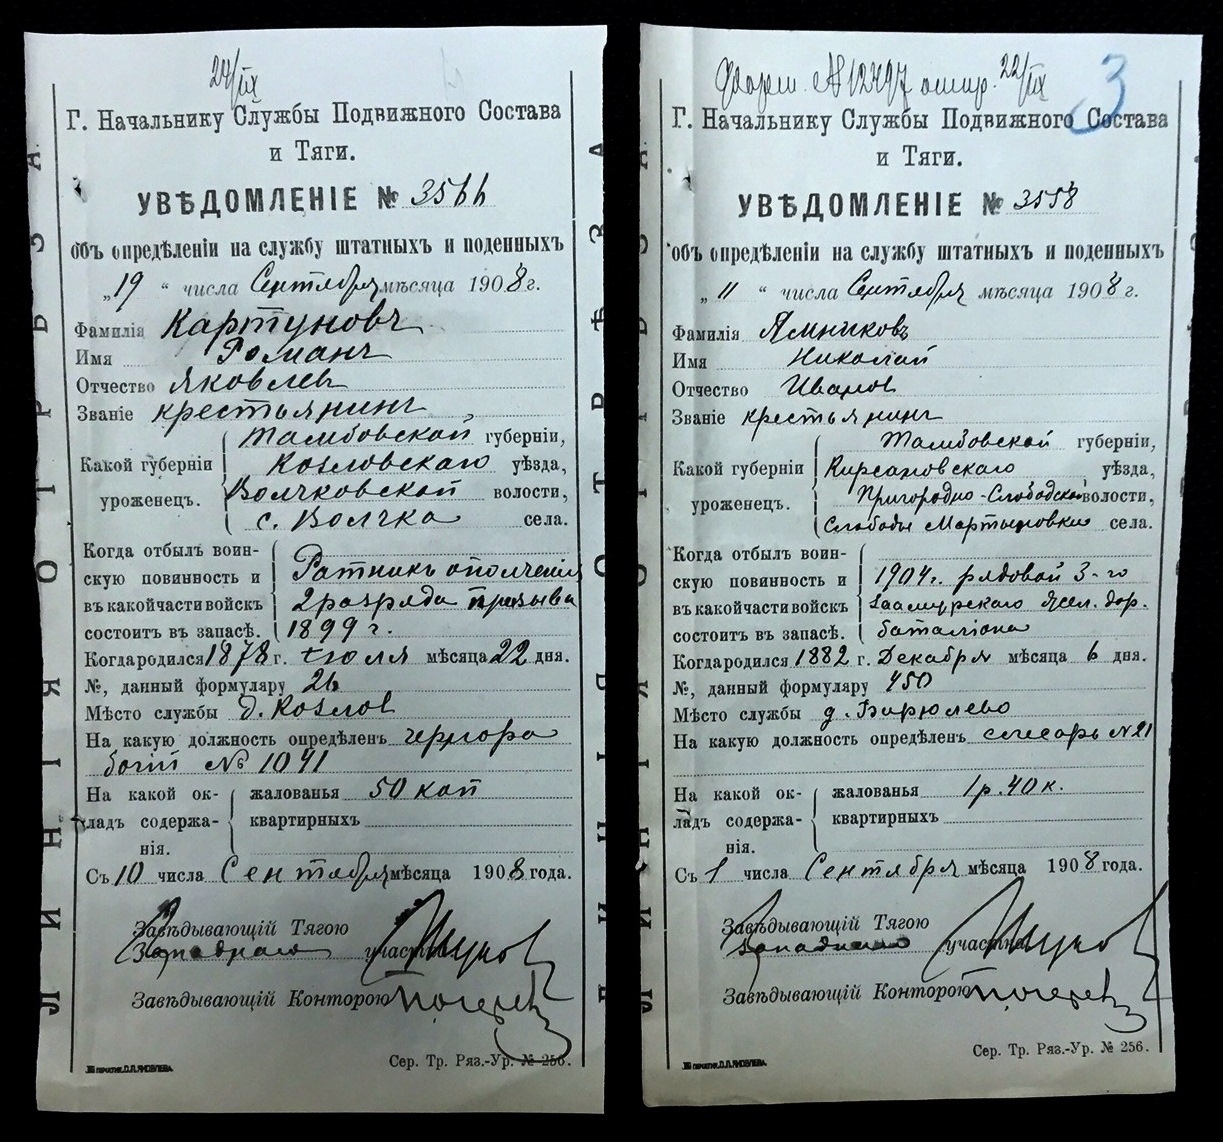 24/IX
Г. Начальнику Службы Подвижного Состава
и Тяги.
УВѢДОМЛЕНІЕ № 3566
объ опредѣленіи на службу штатныхъ и поденныхъ
„19 “ числа Сентября мѣсяца 1908 г.
Фамилія Картуновъ
Имя Романъ
Отчество Яковлев
Званіе крестьянинъ
Тамбовской губерніи,
Какой губерніи Козловскаго уѣзда,
уроженецъ. Волчковской волости,
с. Волчка села.
Когда отбылъ воин-
скую повинность и Ратникъ ополченія
въ какой части войскъ 2 разряда призыва
состоитъ въ запасѣ. 1899 г.
Когда родился 1878 г. Іюля мѣсяца 22 дня.
№, данный формуляру 26
Мѣсто службы д. Козлов
На какую должность опредѣленъ чернора
бочій № 1041
На какой ок- жалованья 50 коп
ладъ содержа- квартирныхъ
нія.
Съ 10 числа Сентября мѣсяца 1908 года.
Завѣдывающій Тягою
Западнаго участка
Завѣдывающій Конторою
Сер. Тр. Ряз.-Ур. № 256.
ЛИНІЯ ОТРѢЗА.
Форм. №12497 отпр. 22/IX
3
Г. Начальнику Службы Подвижного Состава
и Тяги.
УВѢДОМЛЕНІЕ № 3558
объ опредѣленіи на службу штатныхъ и поденныхъ
„ 11 “ числа Сентября мѣсяца 1908 г.
Фамилія Ямниковъ
Имя Николай
Отчество Иванов
Званіе крестьянинъ
Тамбовской губерніи,
Какой губерніи Кирсановскаго уѣзда,
уроженецъ. Пригородно-Слободской волости,
Слободы Мартыновки села.
Когда отбылъ воин-
скую повинность и 1904 г. рядовой 3-го
въ какой части войскъ Заамурскаго жел. дор.
состоитъ въ запасѣ. баталіона
Когда родился 1882 г. Декабря мѣсяца 6 дня.
№, данный формуляру 450
Мѣсто службы д. Бирюлево
На какую должность опредѣленъ слесарь № 21
На какой ок- жалованья 1 р. 40 к.
ладъ содержа- квартирныхъ
нія.
Съ 1 числа Сентября мѣсяца 1908 года.
Завѣдывающій Тягою
Западнаго участка
Завѣдывающій Конторою
Сер. Тр. Ряз.-Ур. № 256.